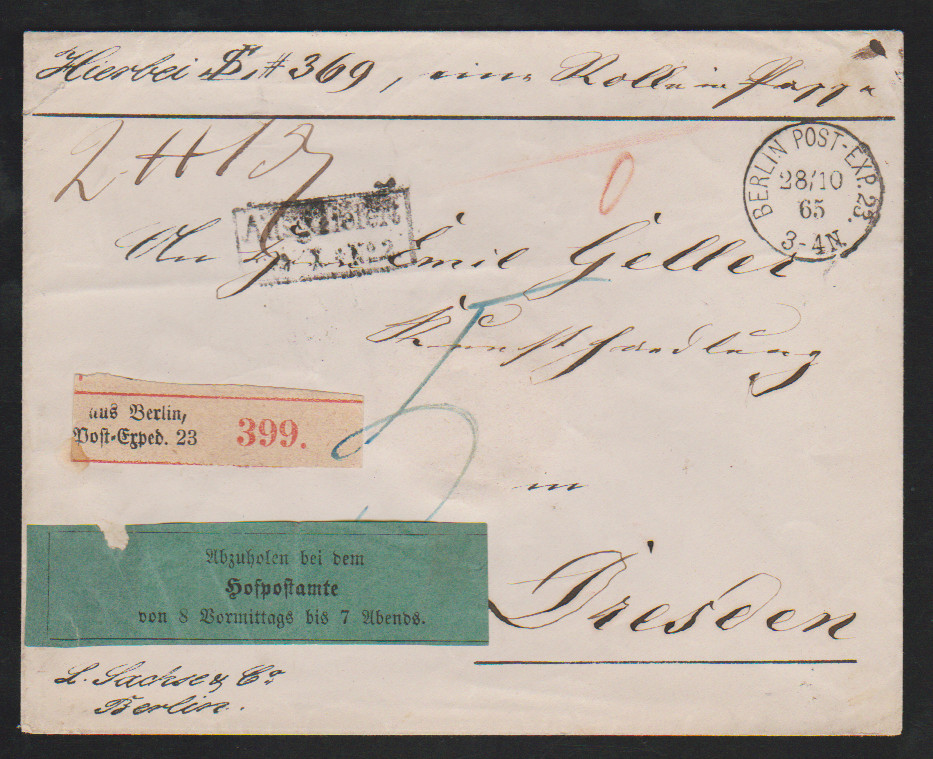 Hierbei # 369, eine Rolle in Pappe
BERLIN POST-EXP. 23.
28/10
65
3-4N.
Ausgeliefert
An Emil Geller
Kunsthandlung
aus Berlin,
Post-Exped. 23
399.
in
Abzuholen bei dem
Hofpostamte
von 8 Vormittags bis 7 Abends.
Dresden
L. Sachse & Co
Berlin.